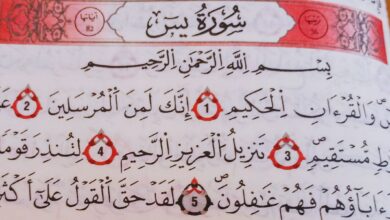 سُورَةُ يس
بِسْمِ اِللَّهِ اِلرَّحْمَٰنِ اِلرَّحِيمِ
وَالْقُرْءَانِ اِلْحَكِيمِ 1 إِنَّكَ لَمِنَ اَلْمُرْسَلِينَ 2
مُّسْتَقِيمٖ 3 تَنزِيلُ اُلْعَزِيزِ اِلرَّحِيمِ 4 لِتُنذِرَ قَوْماٗ
ءَابَآؤُهُمْ فَهُمْ غَٰفِلُونَ 5 لَقَدْ حَقَّ اَلْقَوْلُ عَلَىٰٓ أَكْثَ